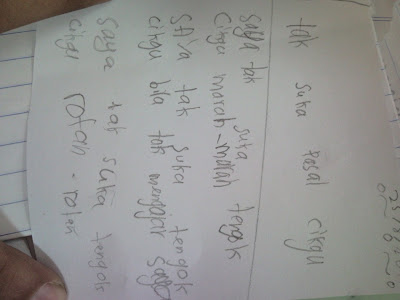 tak suka pasal cikgu
saya tak suka tengok
cikgu marah-marah
saya tak suka tengok
cikgu bila tak mengajar
saya tak suka tengok
cikgu rotan-rotan